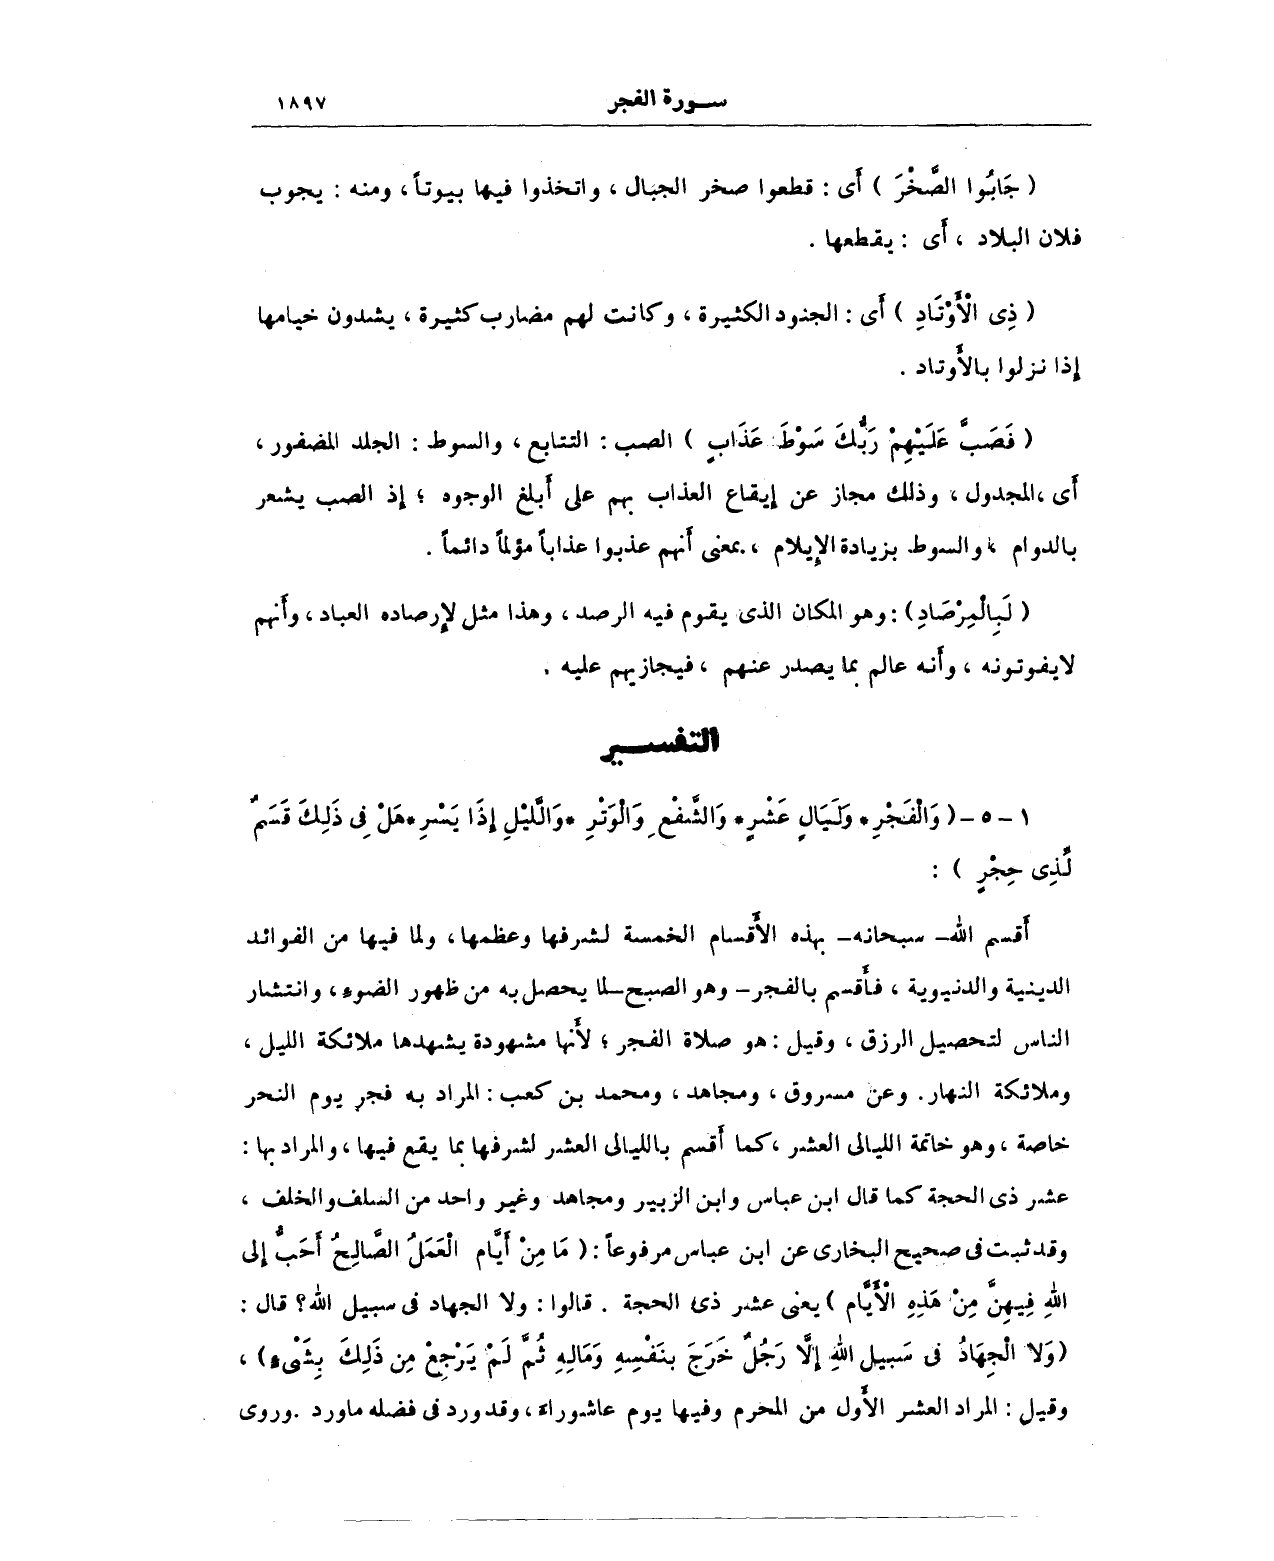 سورة الفجر ١٨٩٧
( جَابُوا الصَّخْرَ ) أَى : قطعوا صخر الجبال ، واتخذوا فيها بيوتاً ، ومنه : يجوب
فلان البلاد ، أَى : يقطعها .
( ذِى الْأَوْتَادِ ) أَى : الجنود الكثيرة ، وكانت لهم مضارب كثيرة ، يشدون خيامها
إذا نزلوا بالأَوتاد .
( فَصَبَّ عَلَيْهِمْ رَبُّكَ سَوْطَ عَذَابٍ ) الصب : التتابع ، والسوط : الجلد المضفور ،
أَى ،المجدول ، وذلك مجاز عن إيقاع العذاب بهم على أَبلغ الوجوه ؛ إذ الصب يشعر
بالدوام ، والسوط بزيادة الإِيلام ، بمعنى أَنهم عذبوا عذاباً مؤلماً دائماً .
( لَبِالْمِرْصَادِ ) : وهو المكان الذى يقوم فيه الرصد ، وهذا مثل لإِرصاده العباد ، وأَنهم
لايفوتونه ، وأَنه عالم بما يصدر عنهم ، فيجازيهم عليه .
التفسير
١ - ٥ - ( وَالْفَجْرِ * وَلَيَالٍ عَشْرٍ * وَالشَّفْعِ وَالْوَتْرِ * وَالَّيْلِ إِذَا يَسْرِ * هَلْ فِى ذَلِكَ قَسَمٌ
لِّذِى حِجْرٍ ) :
أَقسم الله - سبحانه - بهذه الأَقسام الخمسة لشرفها وعظمها ، ولما فيها من الفوائد
الدينية والدنيوية ، فأَقسم بالفجر - وهو الصبح - لما يحصل به من ظهور الضوء ، وانتشار
الناس لتحصيل الرزق ، وقيل : هو صلاة الفجر ؛ لأَنها مشهودة يشهدها ملائكة الليل ،
وملائكة النهار . وعن مسروق ، ومجاهد ، ومحمد بن كعب : المراد به فجر يوم النحر
خاصة ، وهو خاتمة الليالى العشر ، كما أَقسم بالليالى العشر لشرفها بما يقع فيها ، والمراد بها :
عشر ذى الحجة كما قال ابن عباس وابن الزبير ومجاهد وغير واحد من السلف والخلف ،
وقد ثبت فى صحيح البخارى عن ابن عباس مرفوعاً : ( مَا مِنْ أَيَّام الْعَمَلُ الصَّالِحُ أَحَبُّ إِلى
اللهِ فِيهِنَّ مِنْ هَذِهِ الْأَيَّام ) يعنى عشر ذى الحجة . قالوا : ولا الجهاد فى سبيل الله؟ قال :
( وَلا الْجِهَادُ فى سَبيل اللهِ إِلَّا رَجُلٌ خَرَجَ بنَفْسِهِ وَمَالِهِ ثُمَّ لَمْ يَرْجِعْ مِن ذَلِكَ بِشَىْءٍ ) ،
وقيل : المراد العشر الأَول من المحرم وفيها يوم عاشوراءَ ، وقد ورد فى فضله ماورد . وروى